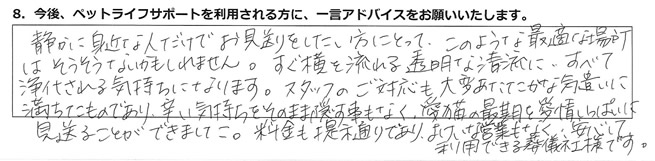 8. 今後、ペットライフサポートを利用される方に、一言アドバイスをお願いいたします。
静かに身近な人だけでお見送りをしたい方にとって、このような最適な場所
はそうそうないかもしれません。すぐ横を流れる透明な清流に、すべて
浄化される気持ちになります。スタッフのご対応も大変あたたかな気遣いに
満ちたものであり、辛い気持ちをそのまま隠す事もなく、愛猫の最期を愛情いっぱいに
見送ることができました。料金も提示通りであり、よけいな営業もなく、安心して
利用できる葬儀社様です。